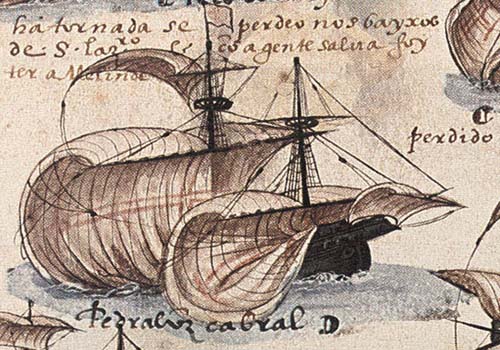 ha tornada se perdeo nos bayxos
de S. laзʳᵒ e a gente salva foy
ter a Melinde
perdido
Pedralvz cabral D